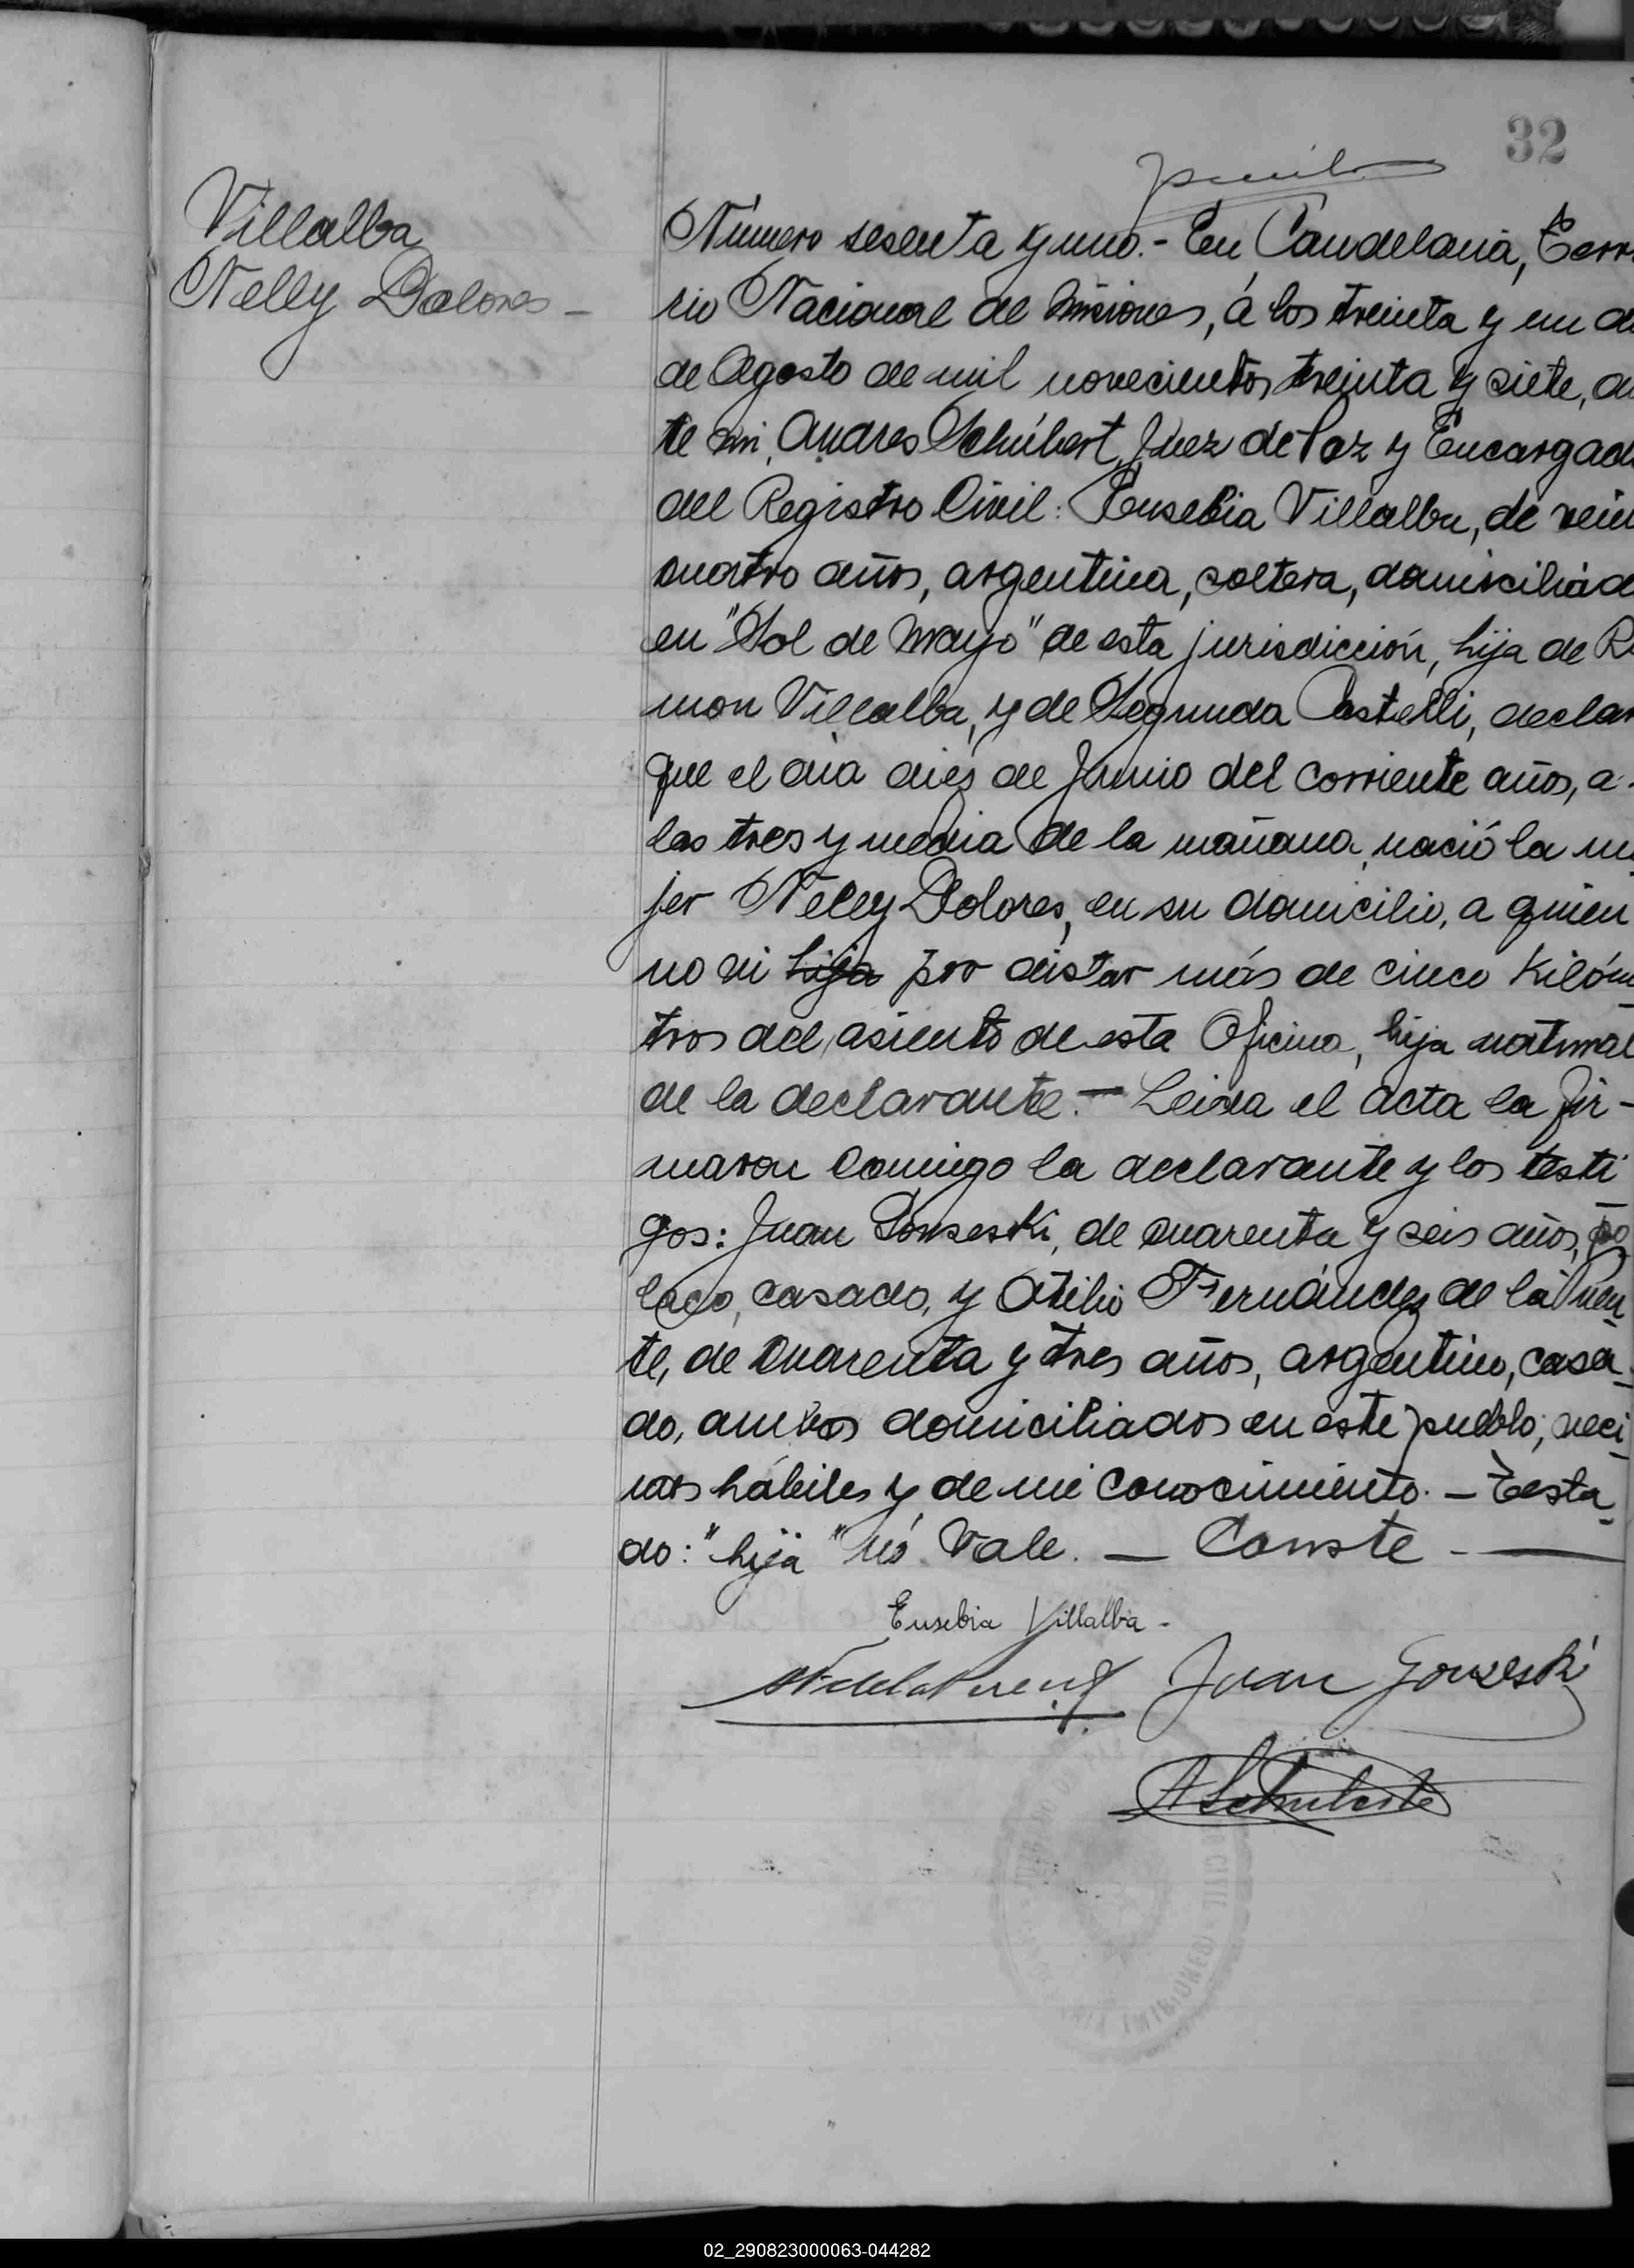 32
Villalba
Nelly Dolores -
Número sesenta y uno.- En Candelaria, Terri
rio Nacional de Misiones, á los treinta y un di
de Agosto de mil novecientos treinta y siete, an
te mi, Andres Schúbert, Juez de Paz y Encargado
del Registro Civil: Eusebia Villalba, de vein
cuatro años, argentina, soltera, domiciliad
en "Sol de Mayo" de esta jurisdicción, hija de Ra
mon Villalba, y de Segunda Castelli, declar
que el dia diés de Junio del corriente años, a-
las tres y media de la mañana, nació la mu
jer Nelly Dolores, en su domicilio, a quien
no vi hija por distar más de cinco Kilóm
tros del asiento de esta Oficina, hija natural
de la declarante.- Leida el acta la fir-
maron conmigo la declarante y los testi
gos: Juan Gonseski, de cuarenta y seis años, po
laco, casado, y Atilio Fernández de la Puen
te, de cuarenta y tres años, argentino, casa-
do, ambos domiciliados en este pueblo, veci-
nos hábiles y de mi conocimiento.- Testa-
do: "hija" nó Vale. - Conste -
Eusebia Villalba -
Juan Gonseski
ASchuberts
02_290823000063-044282